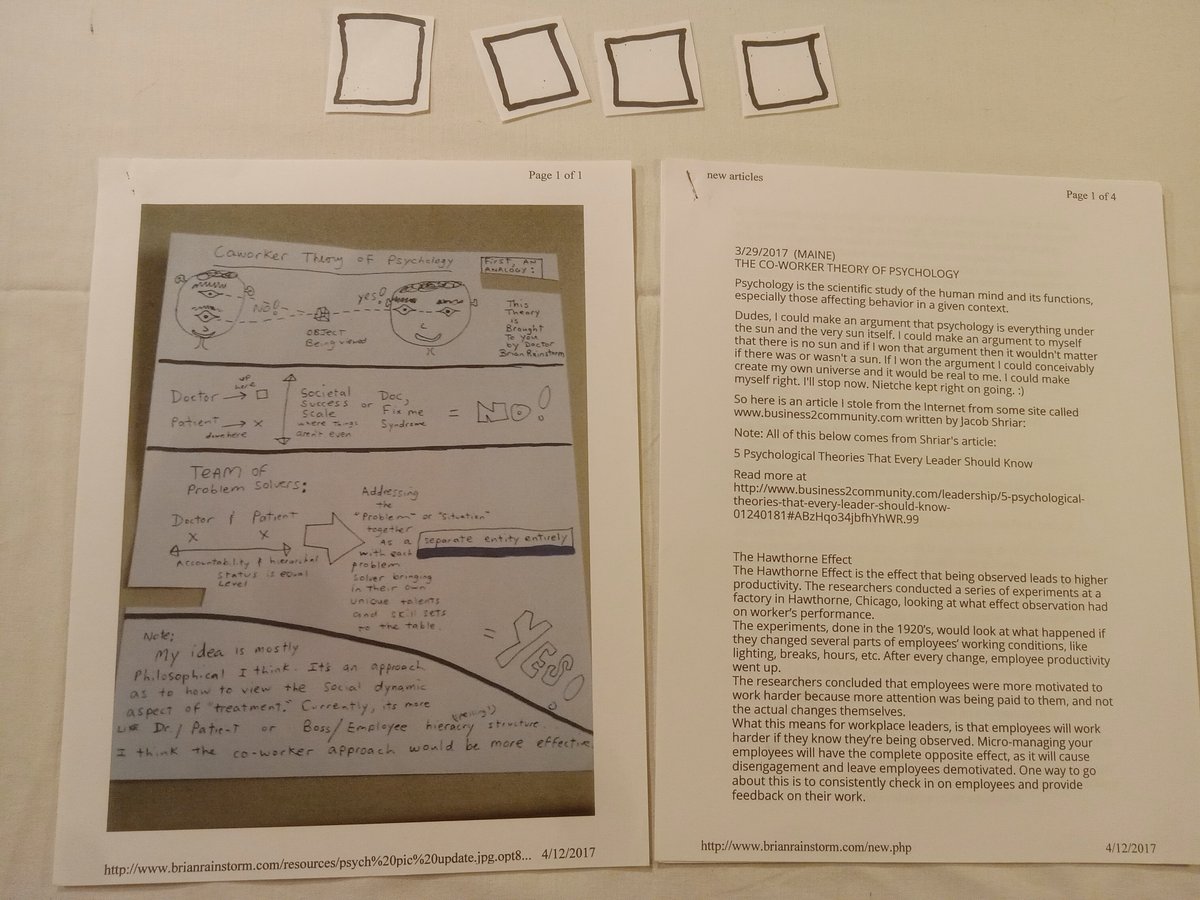 Page 1 of 1
Coworker Theory of Psychology
First, AN
ANALOGY:
NO!
yes!
OBJECT
Being viewed
This
Theory
is
Brought
To you
by Doctor
Brian Rainstorm
Doctor → □
up
here
Patient → x
down here
Societal
Success
Scale
where things
aren't even
or
Doc,
Fix me
Syndrome
= NO!
TEAM OF
Problem Solvers:
Doctor & Patient
x x
Accountability & hierarchal
status is equal
Level
Addressing
the
"Problem" or "Situation"
together
As a separate entity entirely
with each
problem
solver bringing
in their own
unique talents
and skill sets
to the table.
= YES!
Note:
My idea is mostly
Philosophical I think. It's an approach
as to how to view the social dynamic
aspect of "treatment." Currently, its more
like Dr./Patient or Boss/Employee hieracry (spelling?) structure.
I think the co-worker approach would be more effective.
http://www.brianrainstorm.com/resources/psych%20pic%20update.jpg.opt8... 4/12/2017
new articles
Page 1 of 4
3/29/2017 (MAINE)
THE CO-WORKER THEORY OF PSYCHOLOGY
Psychology is the scientific study of the human mind and its functions,
especially those affecting behavior in a given context.
Dudes, I could make an argument that psychology is everything under
the sun and the very sun itself. I could make an argument to myself
that there is no sun and if I won that argument then it wouldn't matter
if there was or wasn't a sun. If I won the argument I could conceivably
create my own universe and it would be real to me. I could make
myself right. I'll stop now. Nietche kept right on going. :)
So here is an article I stole from the Internet from some site called
www.business2community.com written by Jacob Shriar:
Note: All of this below comes from Shriar's article:
5 Psychological Theories That Every Leader Should Know
Read more at
http://www.business2community.com/leadership/5-psychological-
theories-that-every-leader-should-know-
01240181#ABzHqo34jbfhYhWR.99
The Hawthorne Effect
The Hawthorne Effect is the effect that being observed leads to higher
productivity. The researchers conducted a series of experiments at a
factory in Hawthorne, Chicago, looking at what effect observation had
on worker's performance.
The experiments, done in the 1920's, would look at what happened if
they changed several parts of employees' working conditions, like
lighting, breaks, hours, etc. After every change, employee productivity
went up.
The researchers concluded that employees were more motivated to
work harder because more attention was being paid to them, and not
the actual changes themselves.
What this means for workplace leaders, is that employees will work
harder if they know they're being observed. Micro-managing your
employees will have the complete opposite effect, as it will cause
disengagement and leave employees demotivated. One way to go
about this is to consistently check in on employees and provide
feedback on their work.
http://www.brianrainstorm.com/new.php
4/12/2017